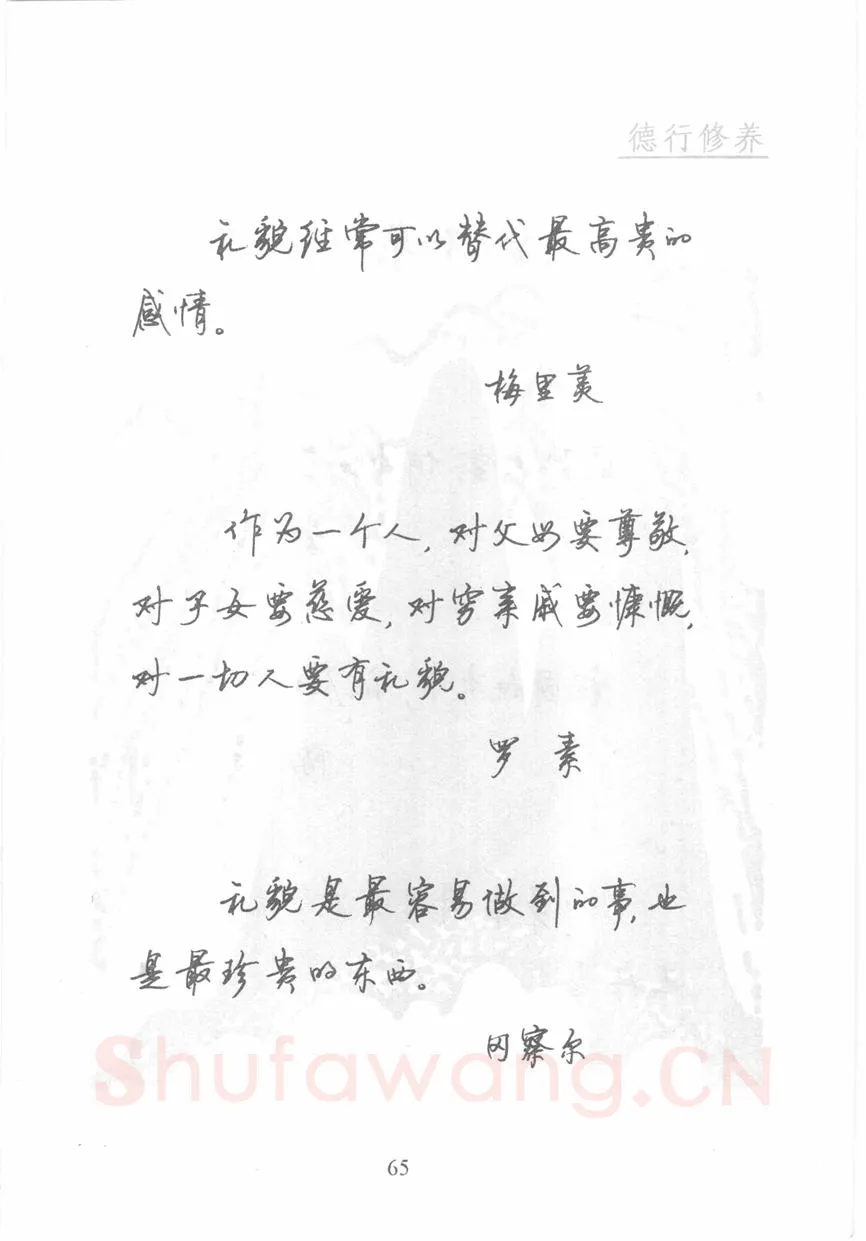 德行修养
礼貌经常可以替代最高贵的
感情。
梅里美
作为一个人，对父母要尊敬，
对子女要慈爱，对穷亲戚要慷慨，
对一切人要有礼貌。
罗 素
礼貌是最容易做到的事，也
是最珍贵的东西。
冈察尔
Shufawang.CN
65